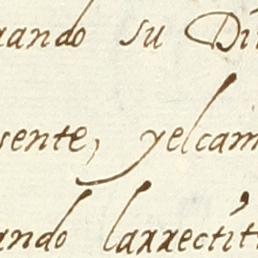 ando su Di
sente, yelcam
ando larrectit